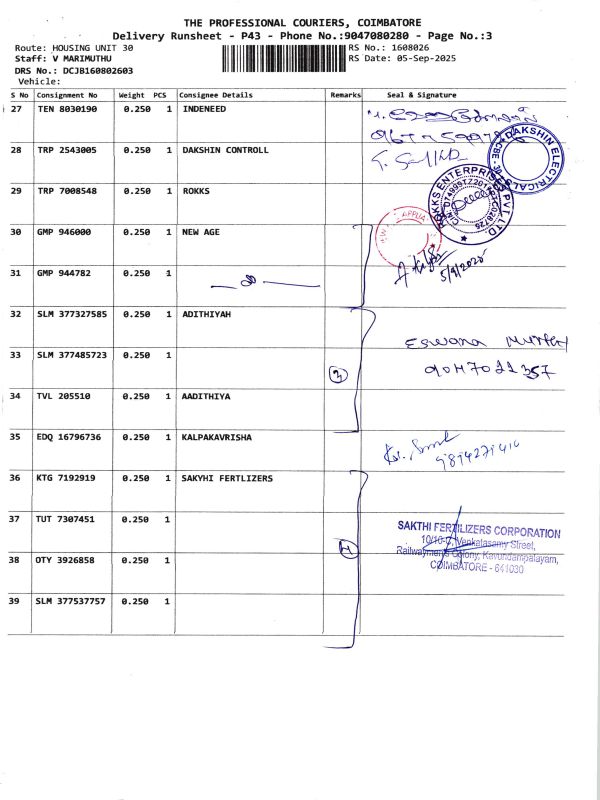 THE PROFESSIONAL COURIERS, COIMBATORE
Delivery Runsheet - P43 - Phone No.:9047080280 - Page No.:3
Route: HOUSING UNIT 30 RS No.: 1608026
Staff: V MARIMUTHU RS Date: 05-Sep-2025
DRS No.: DCJB160802603
Vehicle:
S No Consignment No Weight PCS Consignee Details Remarks Seal & Signature
27 TEN 8030190 0.250 1 INDENEED
28 TRP 2543005 0.250 1 DAKSHIN CONTROLL
DAKSHIN ELECTRICALS
29 TRP 7008548 0.250 1 ROKKS
ROKKS ENTERPRISES PVT LTD.
30 GMP 946000 0.250 1 NEW AGE
31 GMP 944782 0.250 1
5/9/2025
32 SLM 377327585 0.250 1 ADITHIYAH
Eswara
33 SLM 377485723 0.250 1
3
34 TVL 205510 0.250 1 AADITHIYA
35 EDQ 16796736 0.250 1 KALPAKAVRISHA
36 KTG 7192919 0.250 1 SAKYHI FERTLIZERS
37 TUT 7307451 0.250 1
SAKTHI FERTILIZERS CORPORATION
Venkatasamy Street,
38 OTY 3926858 0.250 1
4
Colony, Kavundampalayam,
COIMBATORE - 641030
39 SLM 377537757 0.250 1